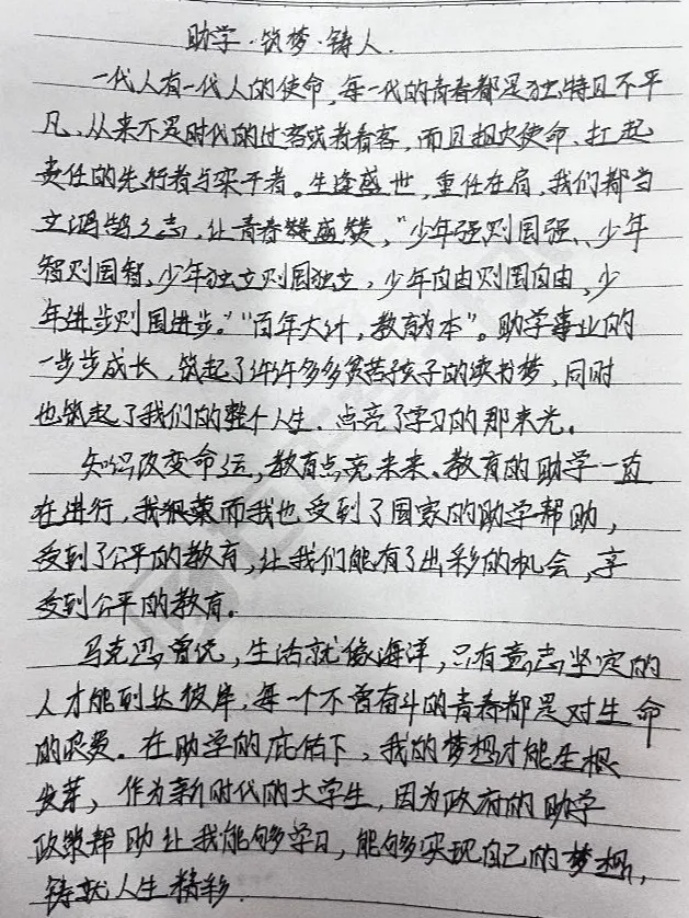 助学·筑梦·铸人.
一代人有一代人的使命,每一代的青春都是独特且不平
凡、从来不是时代的过客或者看客,而且担火使命、扛起
责任的先行者与实干者。生逢盛世,重任在肩,我们都当
立鸿鹄之志,让青春 盛赞,"少年强则国强、少年
智则国智、少年独立则国独立,少年自由则国自由、少
年进步则国进步。""百年大计,教育为本"。助学事业的
一步步成长,筑起了许许多多贫苦孩子的读书梦,同时
也筑起了我们的整个人生.点亮了学习的那束光。
知识改变命运,教育点亮未来、教育的助学一直
在进行,我 而我也受到了国家的助学帮助,
受到了公平的教育,让我们能有了出彩的机会,享
受到公平的教育。
马克思曾说,生活就像海洋,只有意志坚定的
人才能到达彼岸,每一个不曾奋斗的青春都是对生命
的浪费。在助学的庇佑下,我的梦想才能生根
发芽,作为新时代的大学生,因为政府的助学
政策帮助让我能够学习,能够实现自己的梦想,
铸就人生精彩.